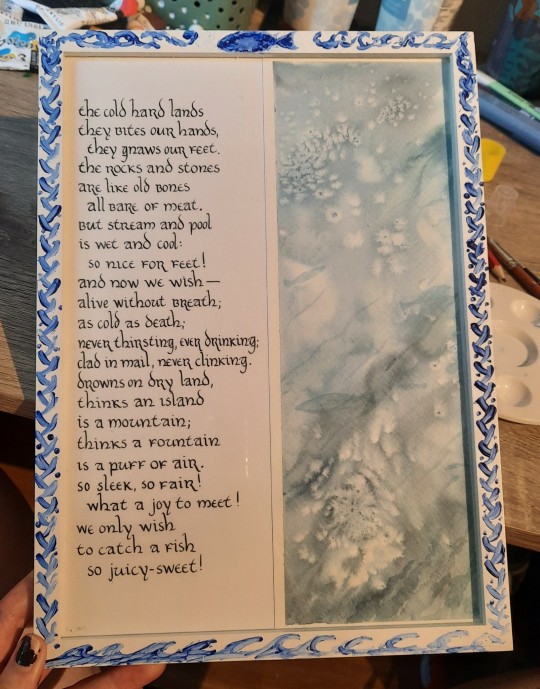 the cold hard lands
they bites our hands,
they gnaws our feet.
the rocks and stones
are like old bones
all bare of meat.
but stream and pool
is wet and cool:
so nice for feet!
and now we wish—
alive without breath;
as cold as death;
never thirsting, ever drinking;
clad in mail, never clinking.
drowns on dry land,
thinks an island
is a mountain;
thinks a fountain
is a puff of air.
so sleek, so fair!
what a joy to meet!
we only wish
to catch a fish
so juicy-sweet!